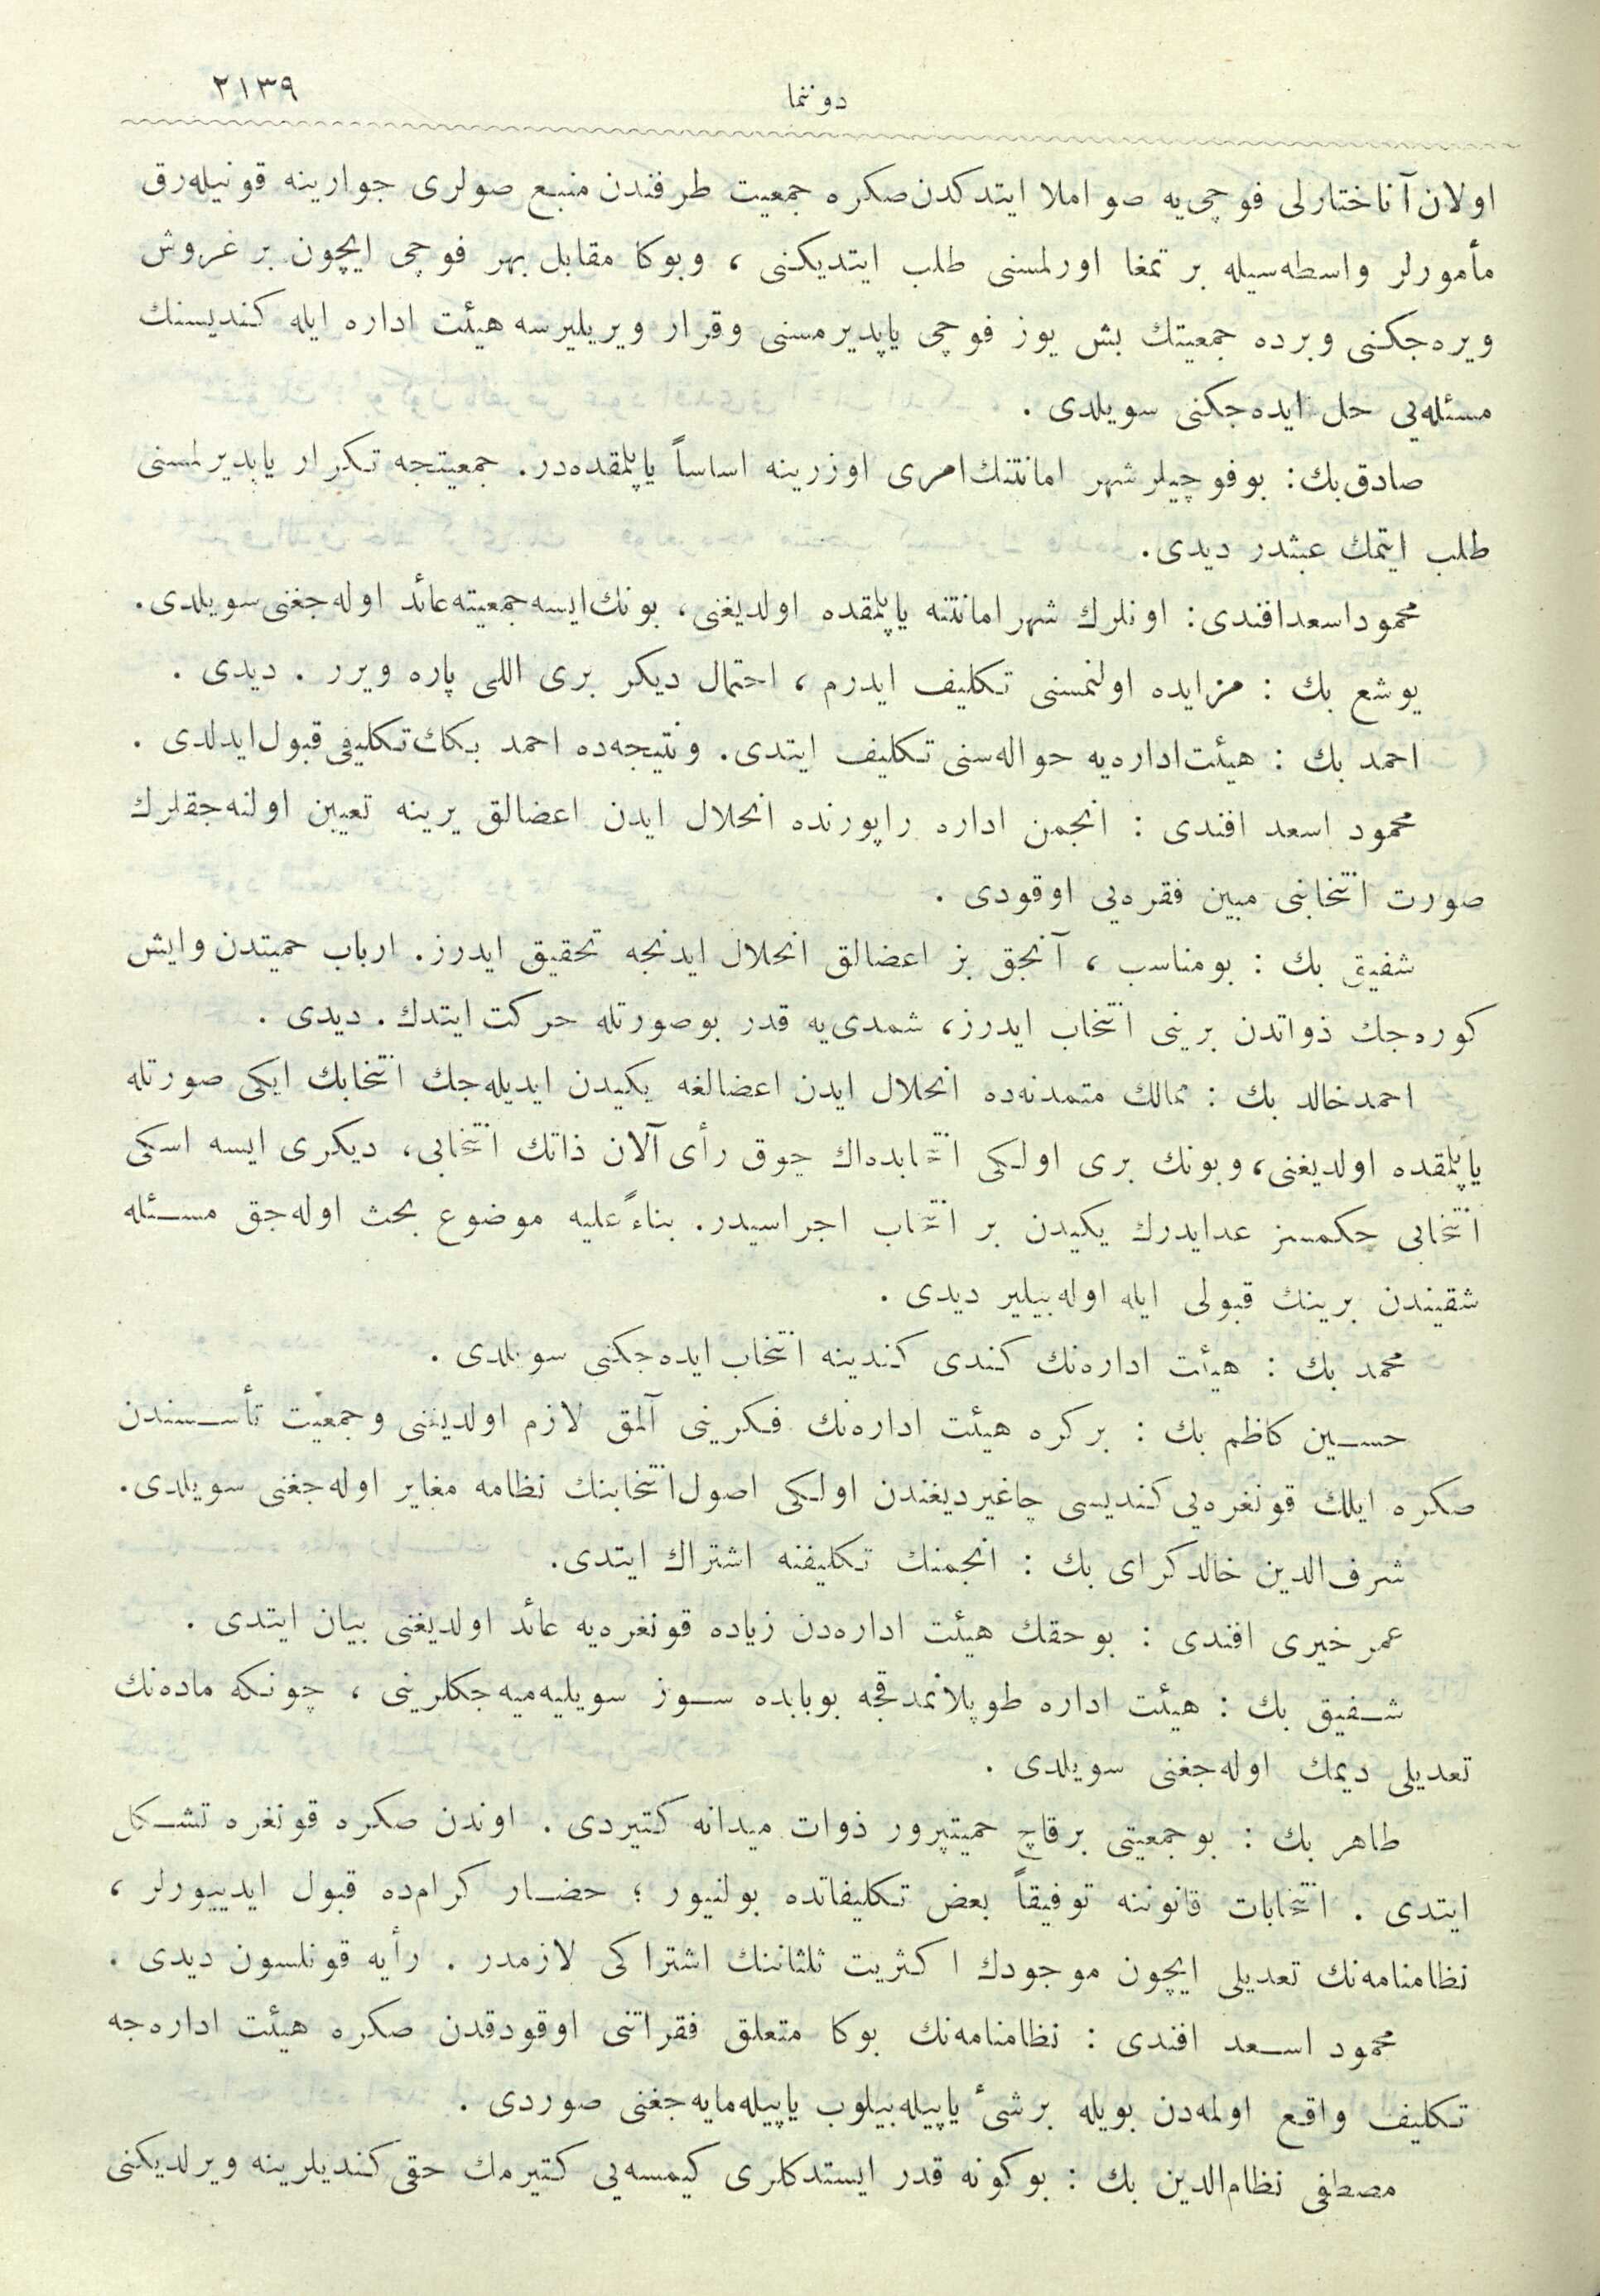 دوننما
٢١٣٩
اولان آناختارلی فوچی‌یه صو املا ایتدكدن‌صكره جمعیت طرفندن منبع صولری جوارینه قونیله‌رق
مأمورلر واسطه‌سیله بر تمغا اورلمسنی طلب ایتدیكنی ، وبوكا مقابل بهر فوچی ایچون بر غروش
ویره‌جكنی وبرده جمعیتك بش یوز فوچی یاپدیرمسنی وقرار ویریلیرسه هیئت اداره ایله كندیسنك
مسئله‌یی حل ایده‌جكنی سویلدی .
صادق‌بك: بوفوچیلر شهر امانتنك‌امری اوزرینه اساساً یاپلمقده‌در. جمعیتجه تكرار یاپدیرلمسنی
طلب ایتمك عبثدر دیدی.
محموداسعدافندی: اونلرك شهرامانتنه یاپلمقده اولدیغنی، بونك‌ایسه‌جمعیته‌عائد اوله‌جغنی‌سویلدی.
یوشع بك : مزایده اولنمسنی تكلیف ایدرم ، احتمال دیكر بری اللی پاره ویرر . دیدی .
احمد بك : هیئت‌اداره‌یه حواله‌سنی تكلیف ایتدی. ونتیجه‌ده احمد بكك‌تكلیفی قبول‌ایدلدی .
محمود اسعد افندی : انجمن اداره راپورنده انحلال ایدن اعضالق یرینه تعیین اولنه‌جقلرك
صورت انتخابنی مبین فقره‌یی اوقودی .
شفیق بك : بومناسب ، آنجق بز اعضالق انحلال ایدنجه تحقیق ایدرز. ارباب حمیتدن وایش
كوره‌جك ذواتدن برینی انتخاب ایدرز، شمدی‌یه قدر بوصورتله حركت ایتدك. دیدی .
احمدخالد بك : ممالك متمدنه‌ده انحلال ایدن اعضالغه یكیدن ایدیله‌جك انتخابك ایكی صورتله
یاپلمقده اولدیغنی، وبونك بری اولكی انتخابده‌اك چوق رأی آلان ذاتك انتخابی، دیكری ایسه اسكی
انتخابی حكمسز عدایدرك یكیدن بر انتخاب اجراسیدر. بناءً‌علیه موضوع بحث اوله‌جق مسئله
شقیندن برینك قبولی ایله اوله‌بیلیر دیدی .
محمد بك : هیئت اداره‌نك كندی كندینه انتخاب‌ایده‌جكنی سویلدی .
حسین كاظم بك : بركره هیئت اداره‌نك فكرینی آلمق لازم اولدیغنی وجمعیت تأسسندن
صكره ایلك قونغره‌یی‌كندیسی چاغیردیغندن اولكی اصول‌انتخابنك نظامه مغایر اوله‌جغنی سویلدی.
شرف‌الدین خالدكرای بك : انجمنك تكلیفنه اشتراك ایتدی.
عمرخیری افندی : بوحقك هیئت اداره‌دن زیاده قونغره‌یه عائد اولدیغنی بیان ایتدی .
شفیق بك : هیئت اداره طوپلانمدقجه بوبابده سوز سویلیه‌میه‌جكلرینی ، چونكه ماده‌نك
تعدیلی دیمك اوله‌جغنی سویلدی .
طاهر بك : بوجمعیتی برقاچ حمیتپرور ذوات میدانه كتیردی . اوندن صكره قونغره تشكل
ایتدی . انتخابات قانوننه توفیقاً بعض تكلیفاتده بولنیور ؛ حضار كرام‌ده قبول ایدییورلر ،
نظامنامه‌نك تعدیلی ایچون موجودك اكثریت ثلثاننك اشتراكی لازمدر . رأیه قونلسون دیدی .
محمود اسعد افندی : نظامنامه‌نك بوكا متعلق فقراتنی اوقودقدن صكره هیئت اداره‌جه
تكلیف واقع اولمه‌دن بویله برشئ یاپیله‌بیلوب یاپیله‌مایه‌جغنی صوردی .
مصطفی نظام‌الدین بك : بوكونه قدر ایستدكلری كیمسه‌یی كتیرمك حقی‌كندیلرینه ویرلدیكنی